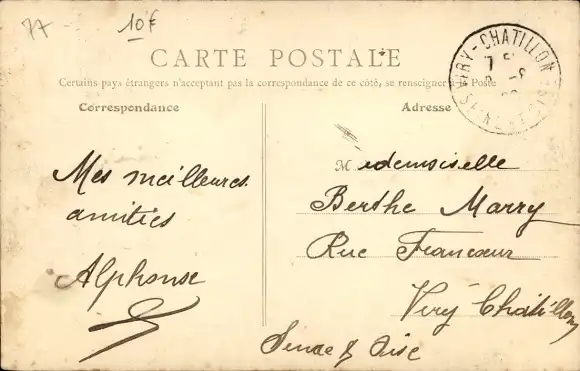 77
10F
CARTE POSTALE
Certains pays étrangers n'acceptant pas la correspondance de ce côté, se renseigner à la Poste
Correspondance
Adresse
VIRY-CHATILLON
SEINE-ET-OISE
Mes meilleures
amitiés
Alphonse
Medemoiselle
Berthe Marry
Rue Francœur
Véry Châtillon
Seine & Oise